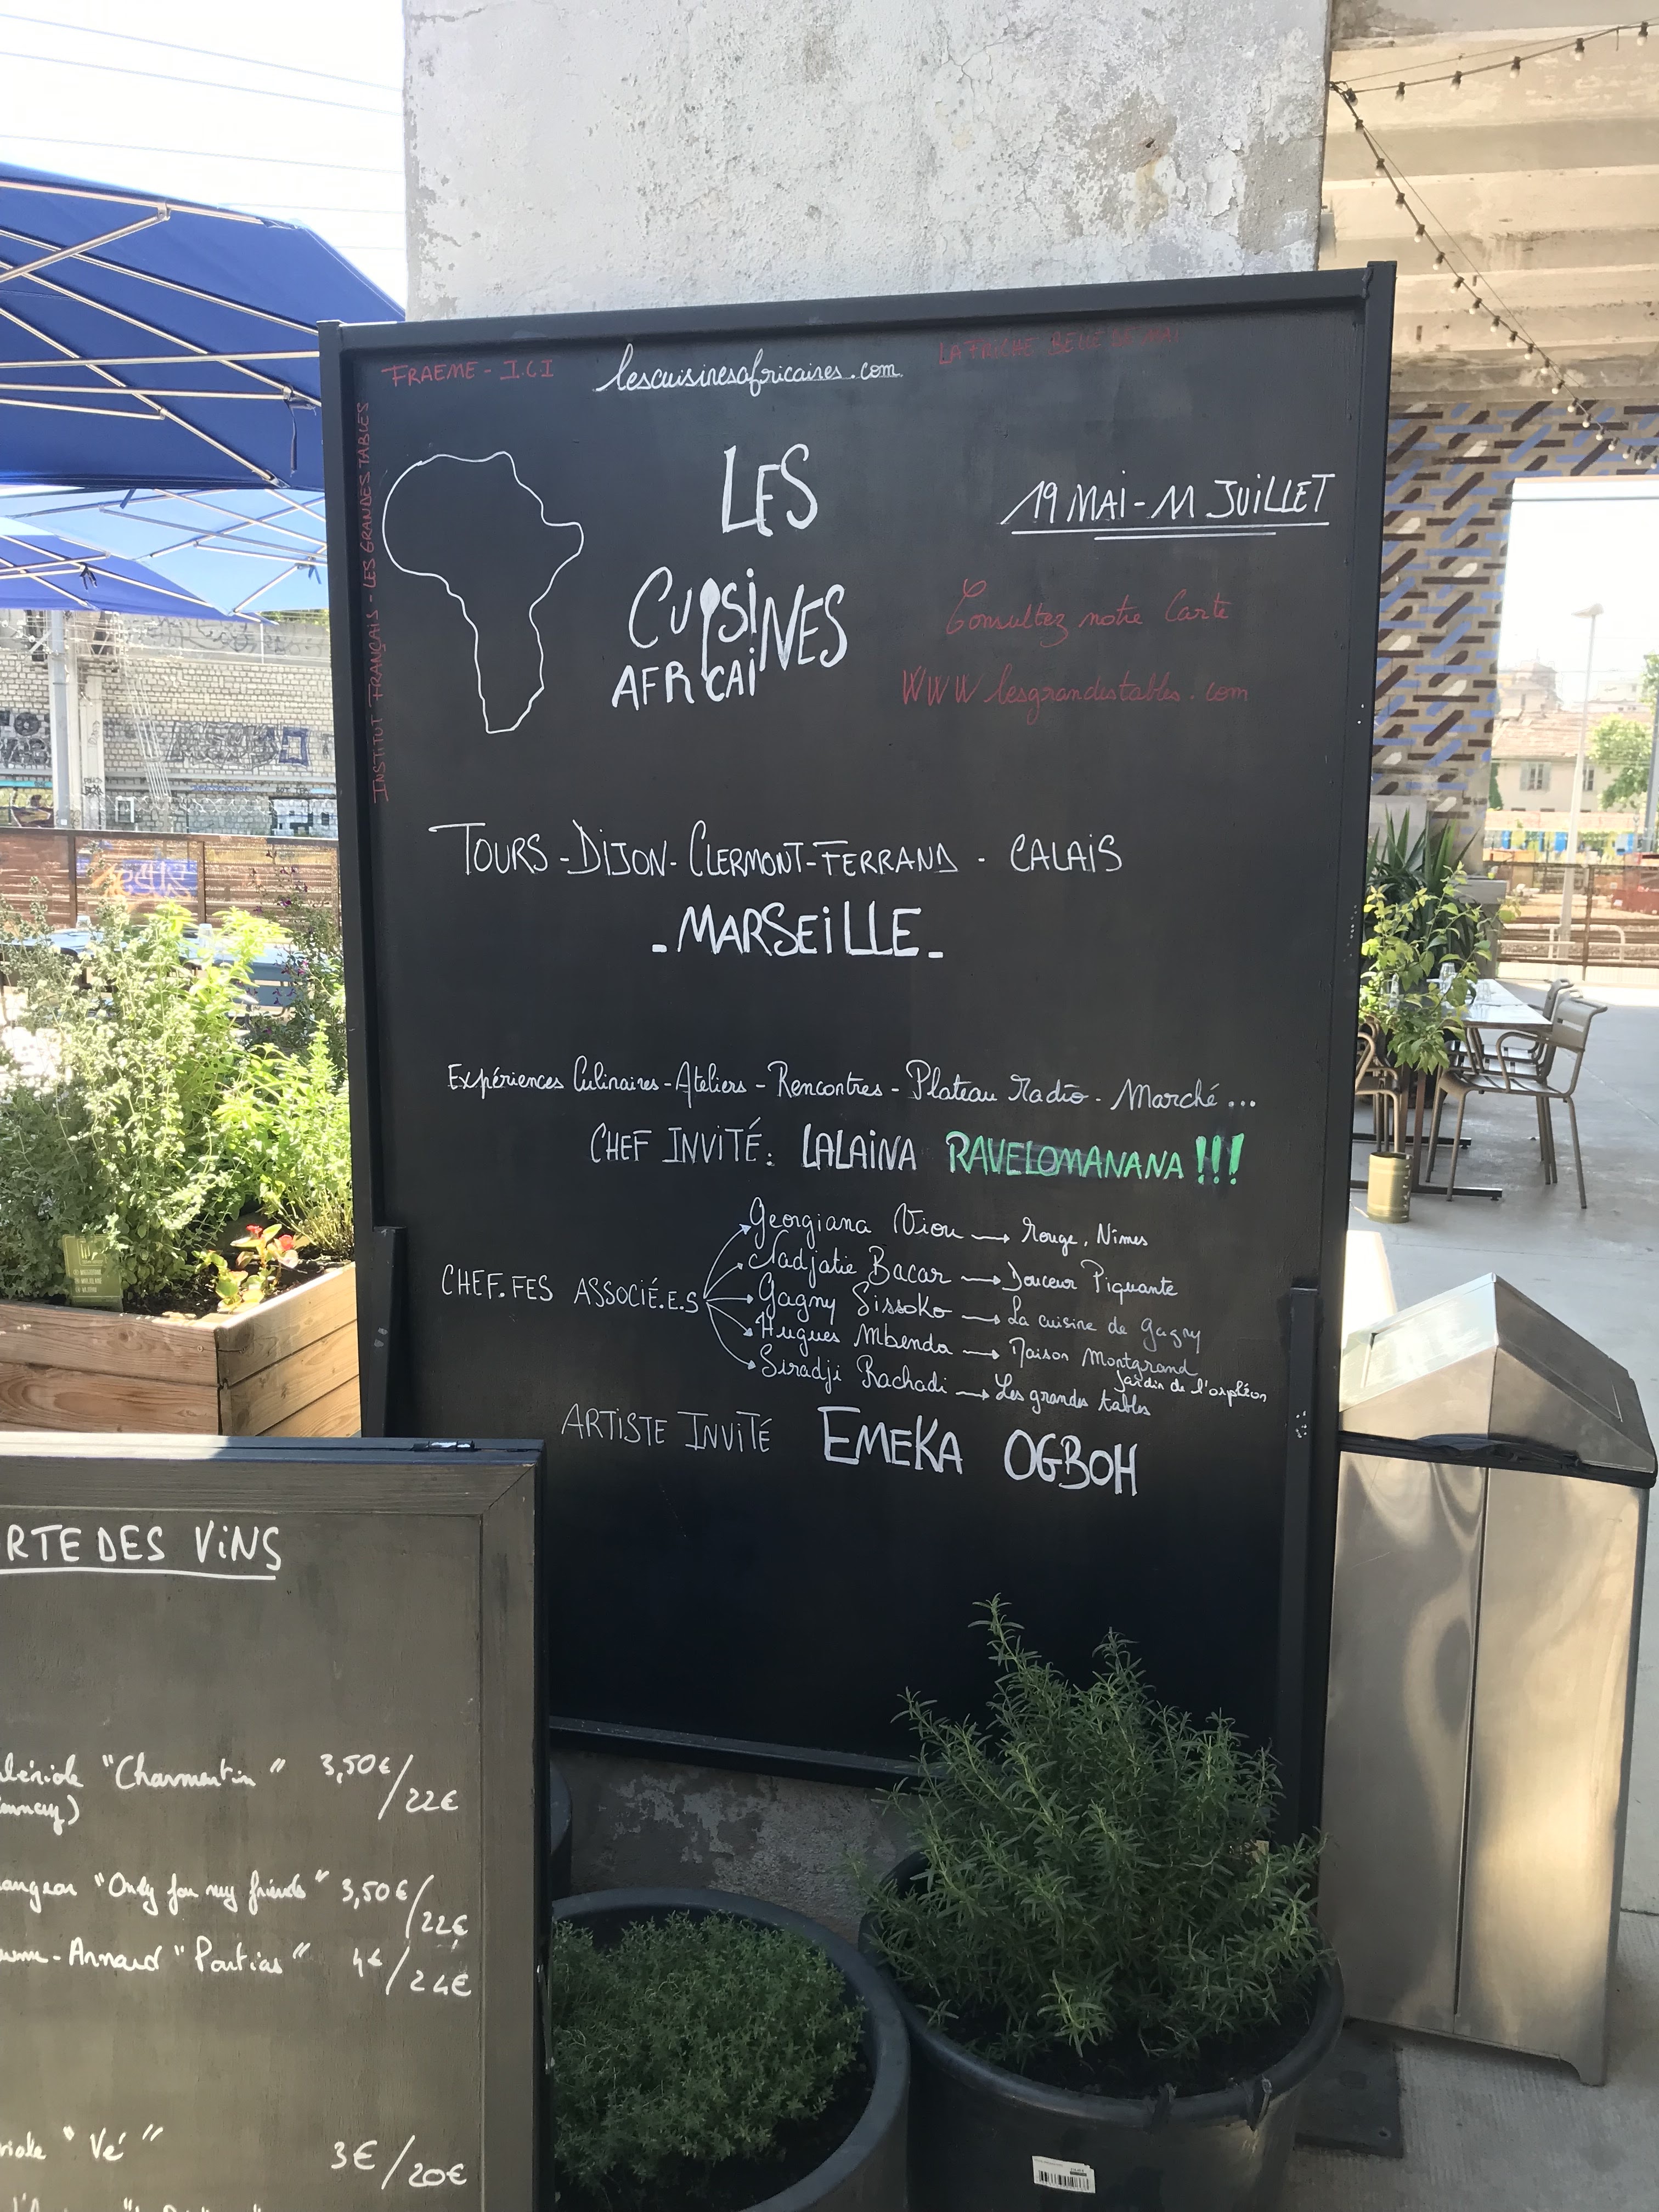 FRAEME - I.C.I
lescuisinesafricaines.com
LA FRICHE BELLE DE MAI
INSTITUT FRANÇAIS - LES GRANDES TABLES
LES
CUISINES
AFRICAINES
19 MAI - 11 JUILLET
Consultez notre Carte
WWW lesgrandestables.com
TOURS - DIJON - CLERMONT-FERRAND - CALAIS
- MARSEILLE -
Expériences Culinaires - Ateliers - Rencontres - Plateau radio - Marché ...
CHEF INVITÉ : LALAINA RAVELOMANANA !!!
CHEF.FES ASSOCIÉ.E.S
Georgiana Viou → Rouge, Nîmes
Nadjatie Bacar → Douceur Piquante
Gagny Sissoko → La cuisine de Gagny
Hugues Mbenda → Maison Montgrand
Jardin de l'orphéon
Siradji Rachadi → Les grandes tables
ARTISTE INVITÉ EMEKA OGBOH
RTE DES VINS
"Charmentin" 3,50€/22€
"Only for my friends" 3,50€/22€
-Arnaud "Portias" 4€/24€
"Vé" 3€/20€